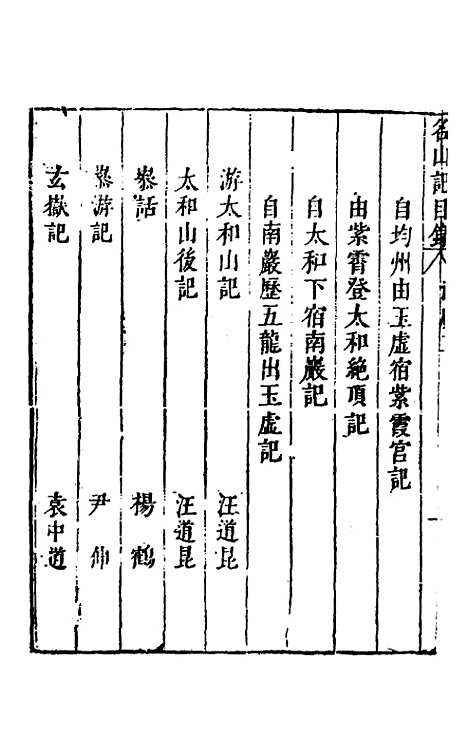 名山記目錄
自均州由玉虛宿紫霞官記
由紫霄登太和絶頂記
自太和下宿南巖記
自南巖歷五龍出玉虛記
游太和山記 汪道昆
太和山後記 汪道昆
叅話 楊鶴
叅游記 尹伸
玄嶽記 袁中道